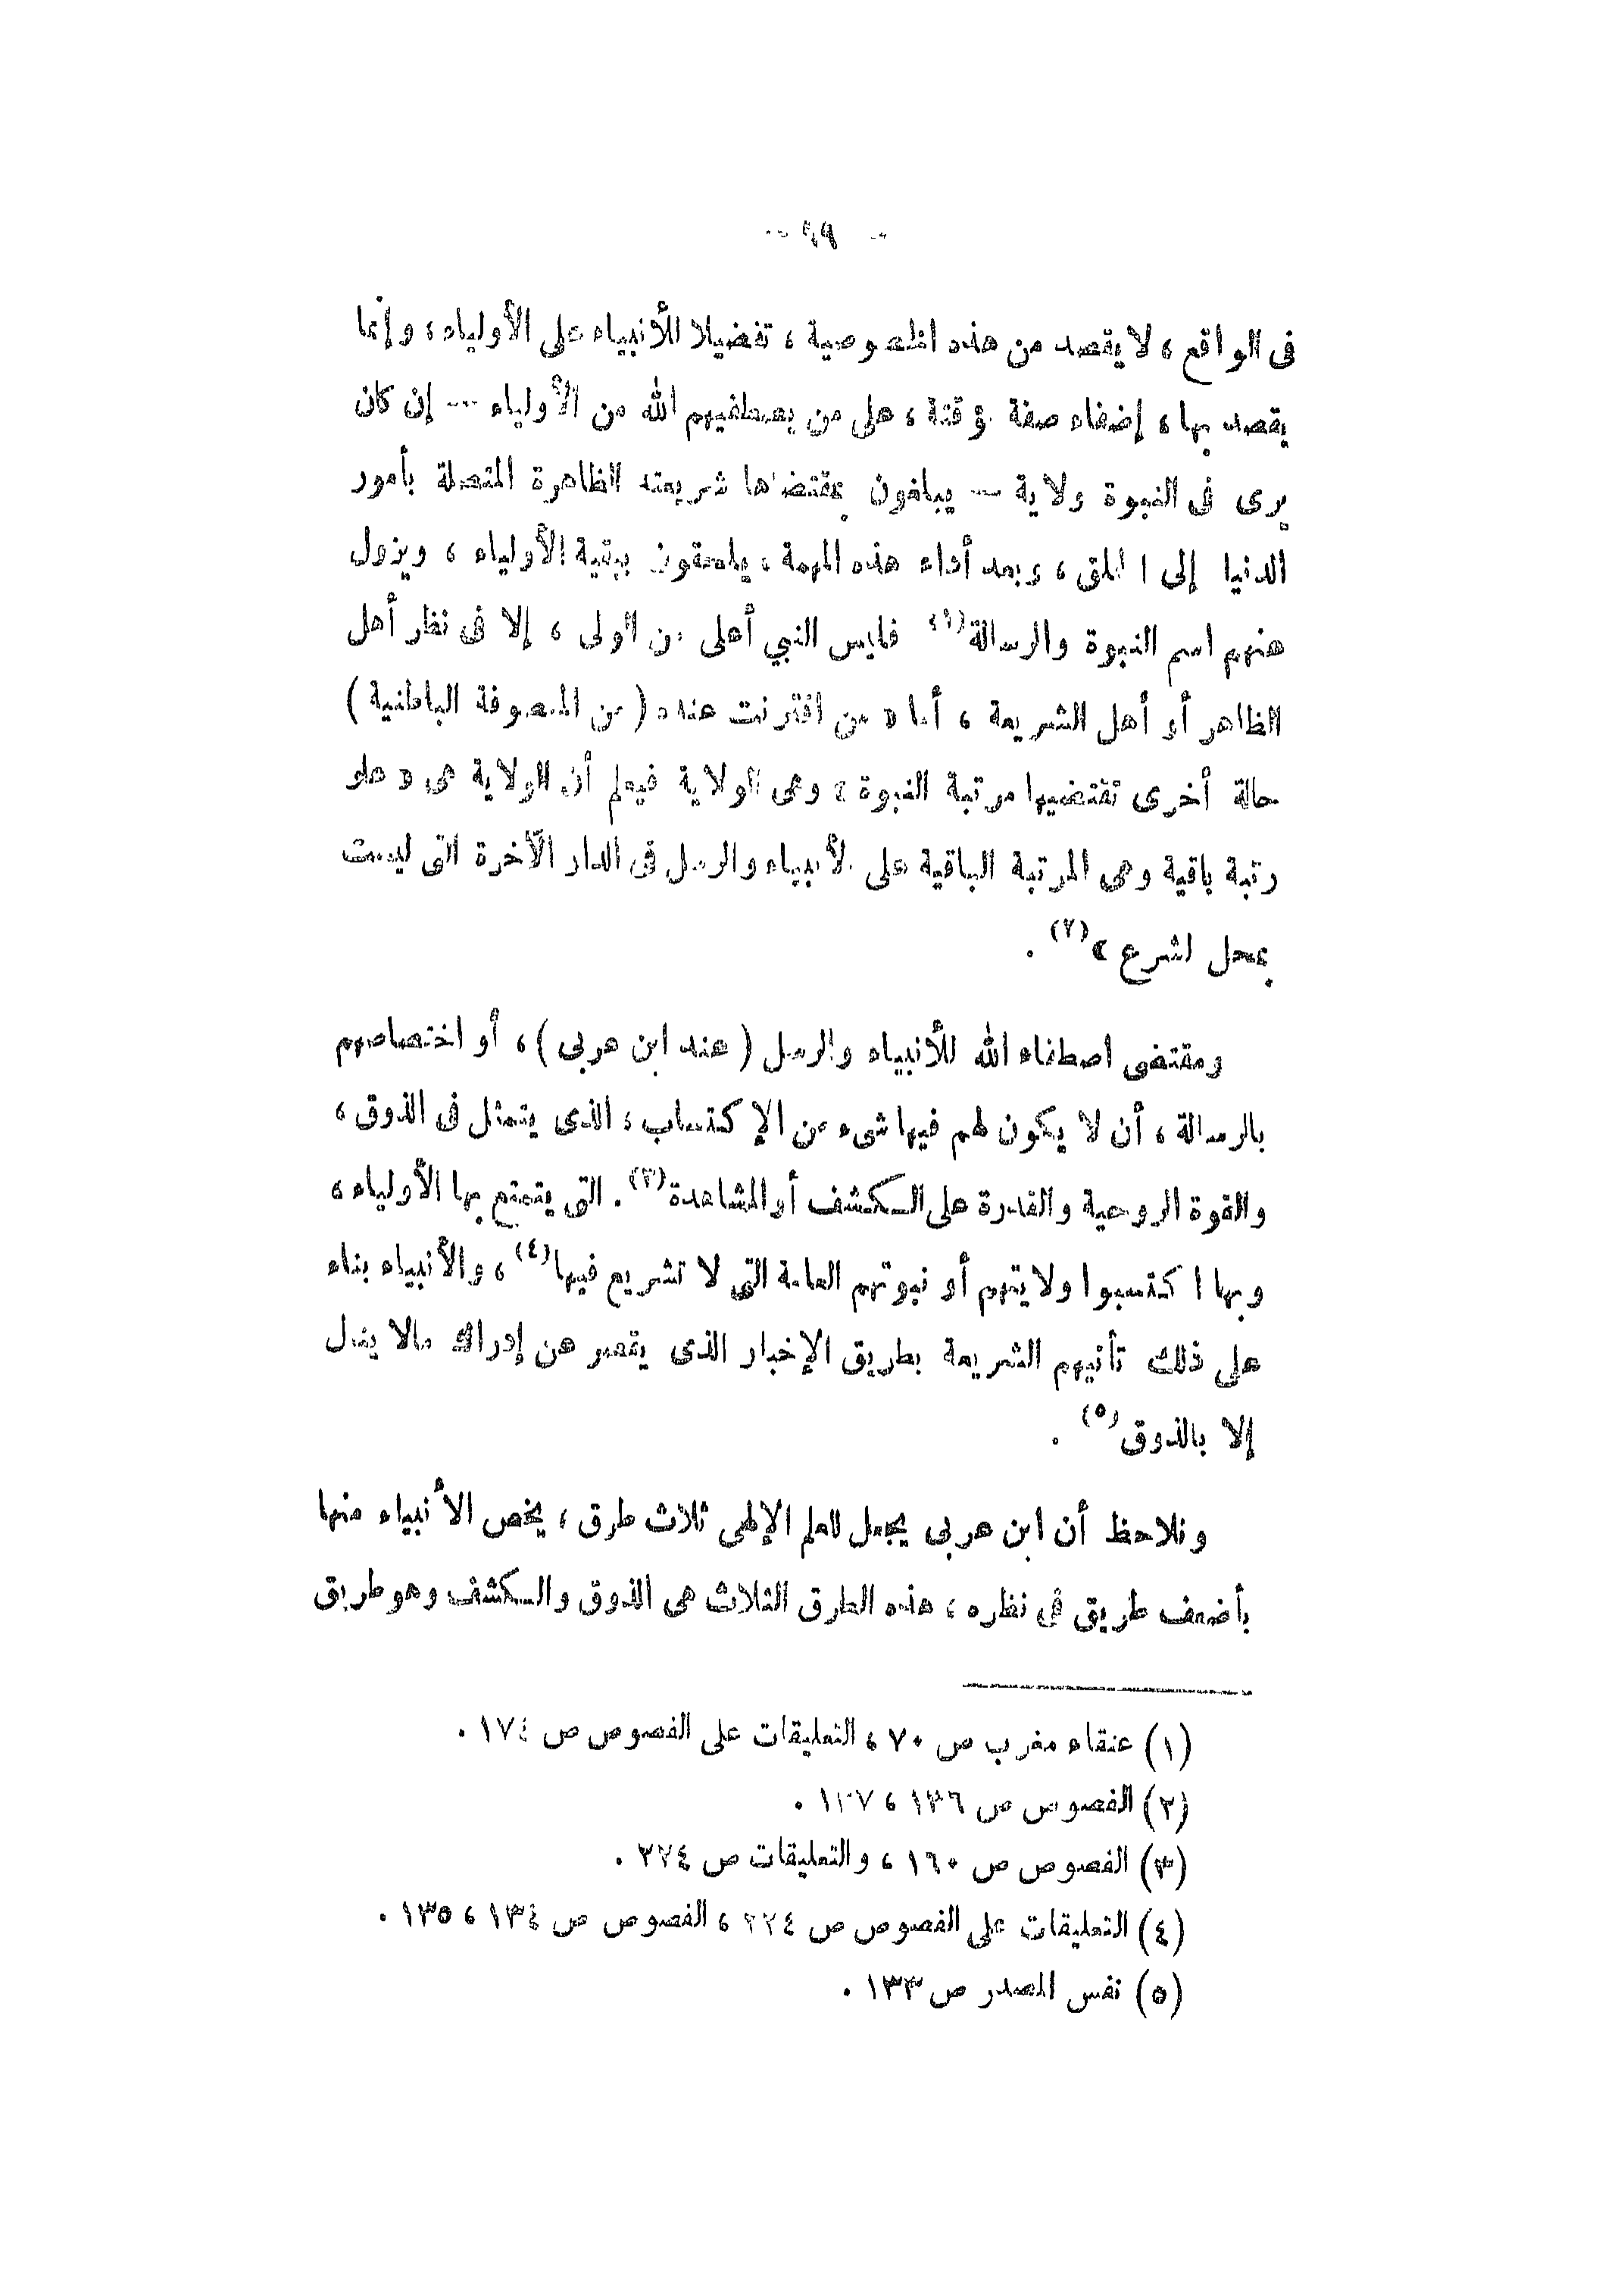 فى الواقع ، لا يقصد من هذه الخصوصية ، تفضيلا للأنبياء على الأولياء ، وإنما
يقصد بها ، إضفاء صفة مؤقتة ، على من يصطفيهم الله من الأولياء — إن كان
يرى فى النبوة ولاية — يبلغون بمقتضاها شريعته الظاهرة المتصلة بأمور
الدنيا إلى الخلق ، وبعد أداء هذه المهمة ، يلحقون ببقية الأولياء ، ويزول
عنهم اسم النبوة والرسالة(١) فليس النبي أعلى من الولى ، إلا فى نظر أهل
الظاهر أو أهل الشريعة ، أما « من اقترنت عنده ( من المتصوفة الباطنية )
حالة أخرى تقتضيها مرتبة النبوة ، وهى الولاية فيعلم أن الولاية هى « علو
رتبة باقية وهى المرتبة الباقية على الأنبياء والرسل فى الدار الآخرة التى ليست
بمحل لشرع »(٢) .
ومقتضى اصطفاء الله للأنبياء والرسل ( عند ابن عربى ) ، أو اختصاصهم
بالرسالة ، أن لا يكون لهم فيها شىء من الإكتساب ، الذى يتمثل فى الذوق ،
والقوة الروحية والقدرة على الكشف أو المشاهدة(٣) . التى يتمتع بها الأولياء ،
وبها اكتسبوا ولايتهم أو نبوتهم العامة التى لا تشريع فيها(٤) ، والأنبياء بناء
على ذلك تأتيهم الشريعة بطريق الإخبار الذى يقصر عن إدراك مالا ينال
إلا بالذوق(٥) .
ونلاحظ أن ابن عربى يجعل للعلم الإلهى ثلاث طرق ، يخص الأنبياء منها
بأضعف طريق فى نظره ، هذه الطرق الثلاث هى الذوق والكشف وهو طريق
(١) عنقاء مغرب ص ٧٠ ، التعليقات على الفصوص ص ١٧٤ .
(٢) الفصوص ص ١٣٦ ، ١٣٧ .
(٣) الفصوص ص ١٦٠ ، والتعليقات ص ٢٧٤ .
(٤) التعليقات على الفصوص ص ٢٢٤ ، الفصوص ص ١٣٤ ، ١٣٥ .
(٥) نفس المصدر ص ١٣٣ .